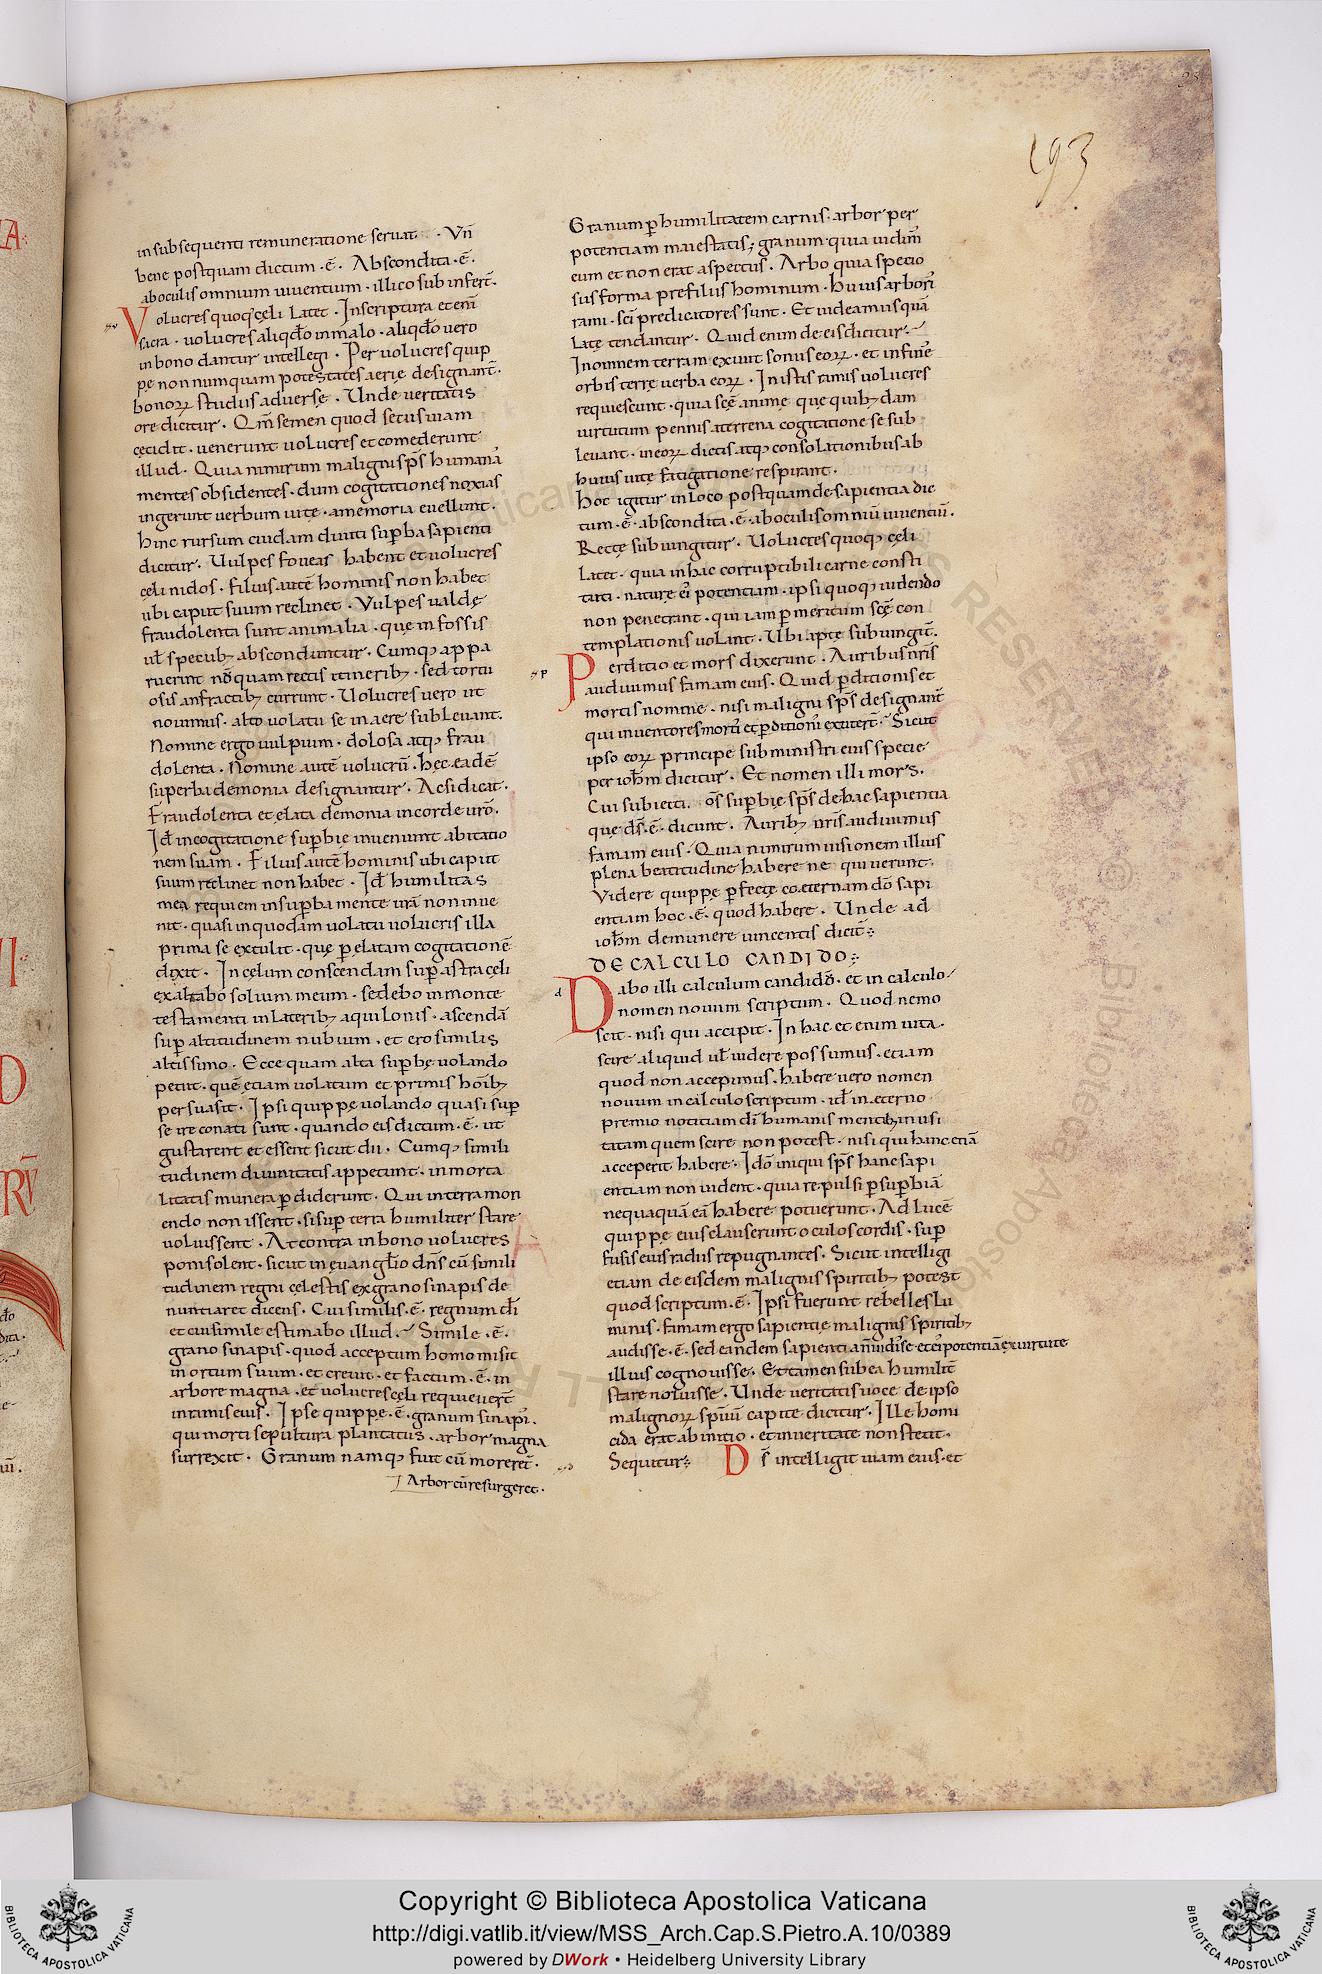 193
in subsequenti remuneratione seruat · Vñ
bene postquam dictum · ē · Abscondita · ē ·
aboculis omnium uiuentium · illico sub infert̄ ·
Volucres quoq; cęli latet · In scriptura eteni
sacra · uolucres aliqđo in malo · aliqđo uero
in bono dantur intellegi · Per uolucres quip
pe non numquam potestates aerię designant̄ ·
bonoꝝ studiis aduerse · Unde ueritatis
ore dicitur · Qm̄ semen quod secus uiam
cecidit · uenerunt uolucres et comederunt
illud · Quia nimirum maligni sp̄s humanā
mentes obsidentes · dum cogitationes noxias
ingerunt uerbum uitę · amemoria euellunt ·
hinc rursum cuidam diuiti suꝑba sapienti
dicitur · Vulpes foueas habent et uolucres
cęli nidos · filius autē hominis non habet
ubi caput suum reclinet · Vulpes ualdę
fraudolenta sunt animalia · quę in fossis
ul̄ specub; absconduntur · Cumq; appa
ruerint nūquam rectis itinerib; · sed tortu
osis anfractib; currunt · Uolucres uero ut
nouimus · alto uolatu se in aere subleuant ·
Nomine ergo uulpium · dolosa atq; frau
dolenta · Nomine autē uolucrū · hęc eadē
superba demonia designantur · Ac si dicat ·
Fraudolenta et elata demonia in corde urō ·
Id in cogitatione suꝑbie inueniunt abitatio
nem suam · Filius autē hominis ubi caput
suum reclinet non habet · Id humilitas
mea requiem in suꝑba mente urā non inue
nit · quasi in quodam uolatu uolucris illa
prima se extulit · quę ꝑ elatam cogitationē
dixit · In cęlum conscendam suꝑ astra cęli
exaltabo solium meum · sedebo in monte
testamenti in laterib; aquilonis · ascendā
suꝑ altitudinem nubium · et ero similis
altissimo · Ecce quam alta suꝑbę uolando
petiit · quē etiam uolatum et primis hoib;
persuasit · Ipsi quippę uolando quasi suꝑ
se ire conati sunt · quando eis dictum · ē · ut
gustarent et essent sicut dii · Cumq; simili
tudinem diuinitatis appetunt · inmorta
litatis munera ꝑdiderunt · Qui in terra mori
endo non issent · si suꝑ terra humiliter stare
uoluissent · At contra in bono uolucres
poni solent · sicut in euanglīo dn̄s cū simili
tudinem regni cęlestis ex grano sinapis de
nuntiaret dicens · Cui similis · ē · regnum di
et cui simile estimabo illud · Simile · ē ·
grano sinapis · quod acceptum homo misit
in ortum suum · et creuit · et factum · ē · in
arbore magna · et uolucres cęli requieuert̄
in ramis eius · Ipse quippę · ē · granum sinapi ·
qui morti sepultura plantatus · arbor magna
surrexit · Granum namq; fuit cū moreret̄ ·
Arbor cū resurgeret ·
Granum ꝑ humilitatem carnis · arbor per
potentiam maiestatis; granum quia uidim̄
eum et non erat aspectus · Arbo quia specio
sus forma prefiliis hominum · Huius arbori
rami · sci predicatores sunt · Et uideamus quā
late tendantur · Quid enim de eis dicitur ·
In omnem terram exiuit sonus eoꝝ · et in fine
orbis terrę uerba eoꝝ · In istis ramis uolucres
requiescunt · quia scē animę quę quib; dam
uirtutum pennis aterrena cogitatione se sub
leuant · in eoꝝ dictis atq; consolationibus ab
huius uitę fatigatione respirant ·
Hoc igitur in loco postquam de sapientia dic
tum · ē · abscondita · ē · ab oculis omniū uiuentiū ·
Recte subiungitur · Uolucres quoq; cęli
latet · quia in hac corruptibili carne consti
tuti · naturę ei potentiam · ipsi quoq; uidendo
non penetrant · qui iam ꝑ meritum scē con
templationis uolant · Ubi apte subiungit̄ ·
Perditio et mors dixerunt · Auribus nr̄is
audiuimus famam eius · Quid ꝑditionis et
mortis nomine · nisi maligni sp̄s designant̄
qui inuentores morti et ꝑditioni extitert̄ · Sicut
ipso eoꝝ principe sub ministri eius specie
per ioh̄m dicitur · Et nomen illi mors ·
Cui subiecti · os̄ suꝑbię sp̄s de hac sapientia
quę ds̄ · ē · dicunt · Aurib; nr̄is audiuimus
famam eius · Quia nimirum uisionem illius
plena beatitudine habere nequiuerunt ·
Videre quippę ꝑfecte coeternam dō sapi
entiam hoc · ē · quod habere · Unde ad
ioh̄m de munere uincentis dicit̄ :
DE CALCULO CANDIDO :
Dabo illi calculum candidū · et in calculo
nomen nouum scriptum · Quod nemo
scit · nisi qui accipit · In hac et enim uita ·
scire aliquid ul̄ uidere possumus · etiam
quod non accepimus · habere uero nomen
nouum in calculo scriptum · id in eterno
premio notitiam di humanis mentib; inusi
tatam quem scire non potest · nisi qui hanc etiā
acceperit habere · Idō iniqui sp̄s hanc sapi
entiam non uident · quia repulsi ꝑ suꝑbiā
nequaquā eā habere potuerunt · Ad lucē
quippę eius clauserunt oculos cordis · suꝑ
fusis eius radiis repugnantes · Sicut intelligi
etiam de eisdem malignis spiritib; potest
quod scriptum · ē · Ipsi fuerunt rebelles lu
minis · famam ergo sapientię malignis spiritib;
audisse · ē · sed eandem sapientiā n̄ uidise et ei potentiā ex uirtute
illius cognouisse · Et tamen sub ea humilit̄
stare noluisse · Unde ueritatis uoce de ipso
malignoꝝ spūū capite dicitur · Ille homi
cida erat ab initio · et in ueritate non stetit ·
Sequitur : Ds̄ intelligit uiam eius · et
Copyright © Biblioteca Apostolica Vaticana
http://digi.vatlib.it/view/MSS_Arch.Cap.S.Pietro.A.10/0389
powered by DWork • Heidelberg University Library
BIBLIOTECA APOSTOLICA VATICANA
BIBLIOTECA APOSTOLICA VATICANA